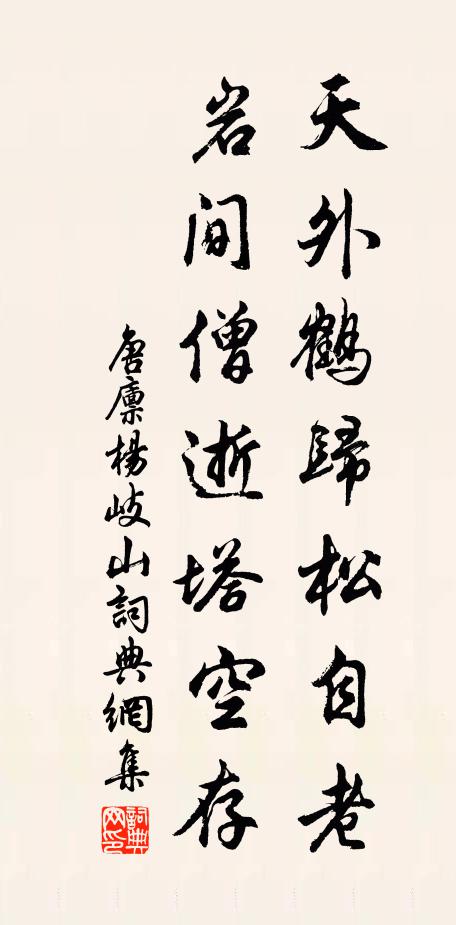 天外鶴歸松自老
岩間僧逝塔空存
唐廩楊岐山詞典網集
詞典網印